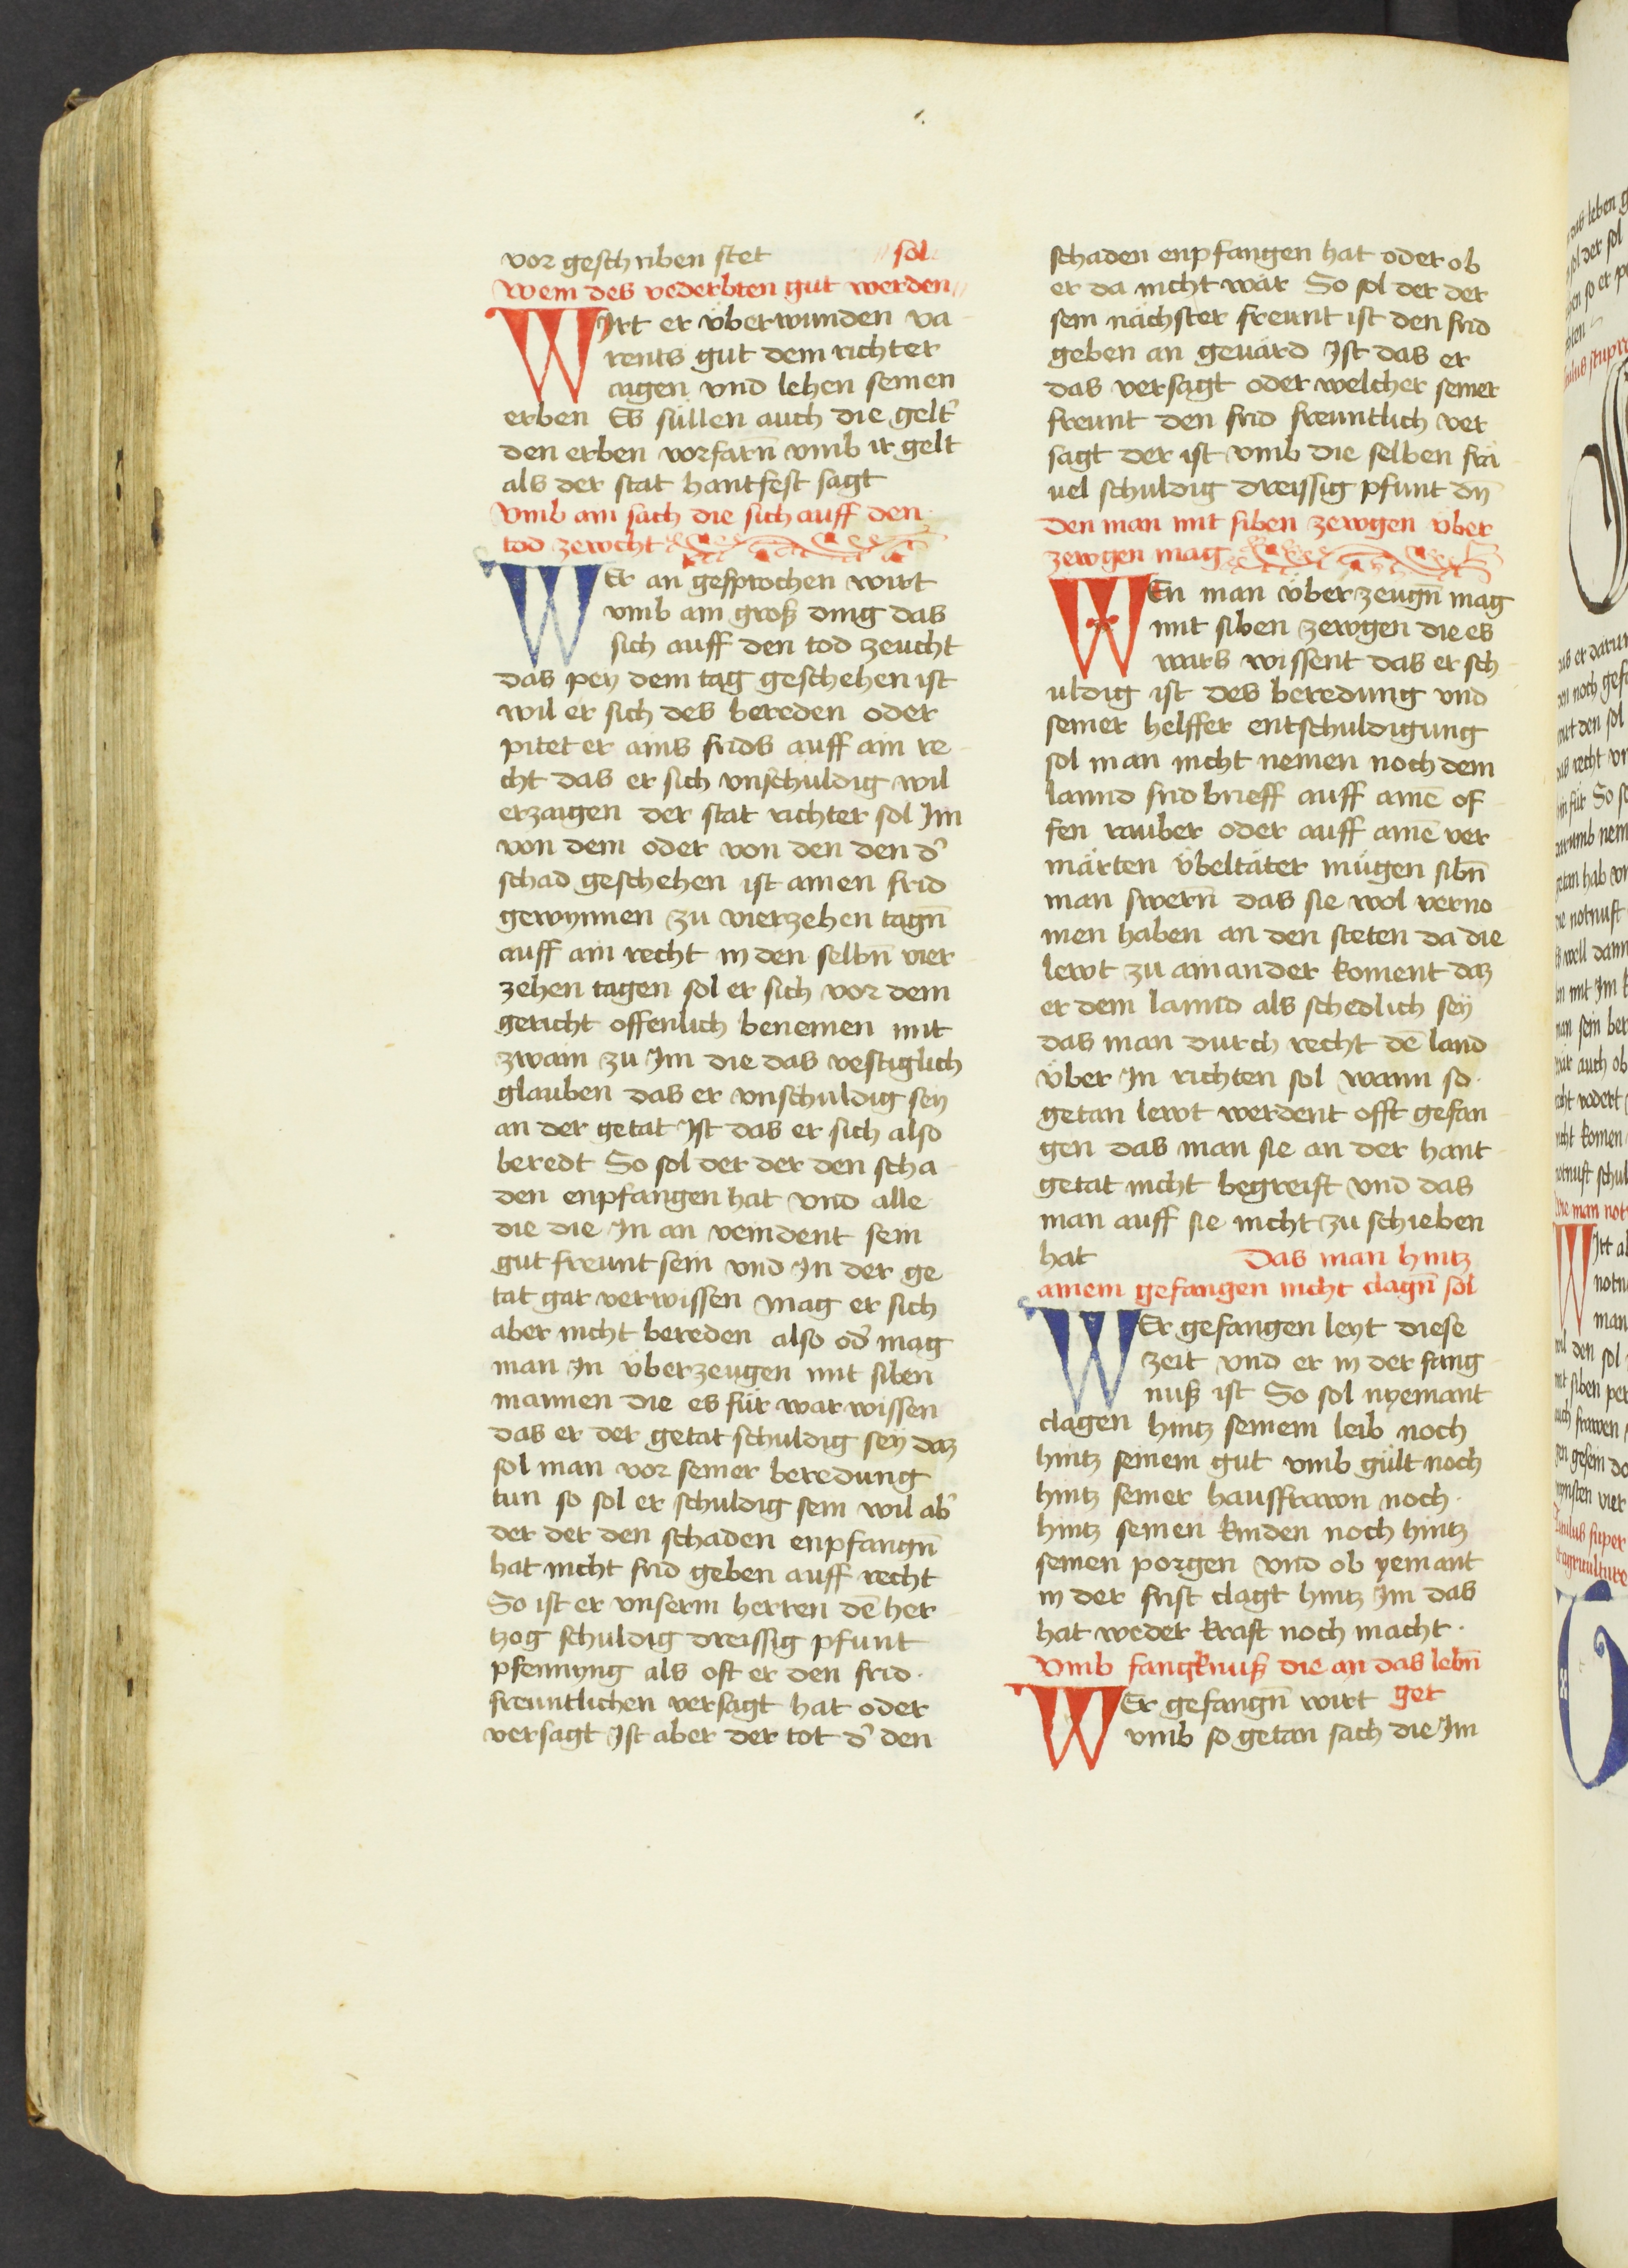 vor geschriben stet
sol
Wem des vederbten gut werden
WIrt er vͤberwunden va
rents gut dem richter
aigen vnd lehen seinen
erben Es süllen auch die gelt᾽
den erben vorfarn̄ vmb ir gelt
als der stat hantfest sagt
Vmb ain sach die sich auff den
tod zewcht
WEr an gesprochen wirt
vmb ain groß ding das
sich auff den tod zeucht
das pey dem tag geschehen ist
wil er sich des bereden oder
pitet er ains frids auff ain re
cht das er sich vnschuldig wil
erzaigen der stat richter sol Im
von dem oder von den den d᾽
schad geschehen ist ainen frid
gewynnen zu vierzehen tagn̄
auff ain recht in den selbn̄ vier
zehen tagen sol er sich vor dem
gericht offenlich benemen mit
zwain zu Im die das vestiglich
glauben das er vnschuldig sey
an der getat Ist das er sich also
beredt So sol der der den scha
den enpfangen hat vnd alle
die die In an veindent sein
gut freunt sein vnd In der ge
tat gar verwissen mag er sich
aber nicht bereden also od᾽ mag
man In vͤberzeugen mit siben
mannen die es für war wissen
das er der getat schuldig seÿ daz
sol man vor seiner beredung
tun so sol er schuldig sein wil ab᾽
der der den schaden enpfangn̄
hat nicht frid geben auff recht
So ist er vnserm herren dē her
tzog schuldig dreissig pfunt
pfennyng als oft er den frid
freuntlichen versagt hat oder
versagt Ist aber der tot d᾽ den
schaden enpfangen hat oder ob
er da nicht wär So sol der der
sein nächster freunt ist den frid
geben an geuärd Ist das er
das versagt oder welcher seiner
freunt den frid freuntlich ver
sagt der ist vmb die selben frä
uel schuldig dreissig pfunt dn̄
Den man mit siben zewgen vͤber
zewgen mag
WEn man vͤberzeugn̄ mag
mit siben zewgen die es
wars wissent das er sch
uldig ist des beredung vnd
seiner helffer entschuldigung
sol man nicht nemen noch dem
lannd frid brieff auff ainē of
fen rauber oder auff ainē ver
märten vͤbeltäter mügen sibn̄
man swern̄ das sie wol verno
men haben an den steten da die
lewt zu ainander koment daz
er dem lannd als schedlich seÿ
das man durch recht dē land
vͤber In richten sol wann so
getan lewt werdent offt gefan
gen das man sie an der hant
getat nicht begreift vnd das
man auff sie nicht zu schieben
hat
Das man hintz
ainem gefangen nicht clagn̄ sol
WEr gefangen leyt diese
zeit vnd er in der fang
nuß ist So sol nyemant
clagen hintz seinem leib noch
hintz seinem gut vmb gült noch
hintz seiner hausfrawn noch
hintz seinen kinden noch hintz
seinen porgen vnd ob yemant
in der frist clagt hintz Im das
hat weder kraft noch macht
Vmb fangknuß die an das lebn̄
get
WEr gefangn̄ wirt
vmb so getan sach die Im